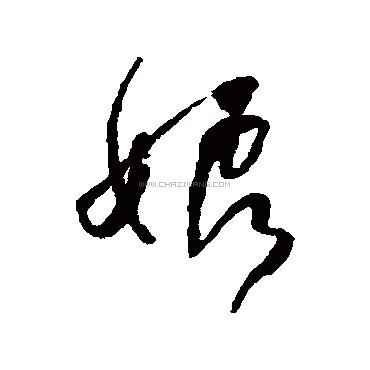 娘
WWW.CHAZIWANG.COM